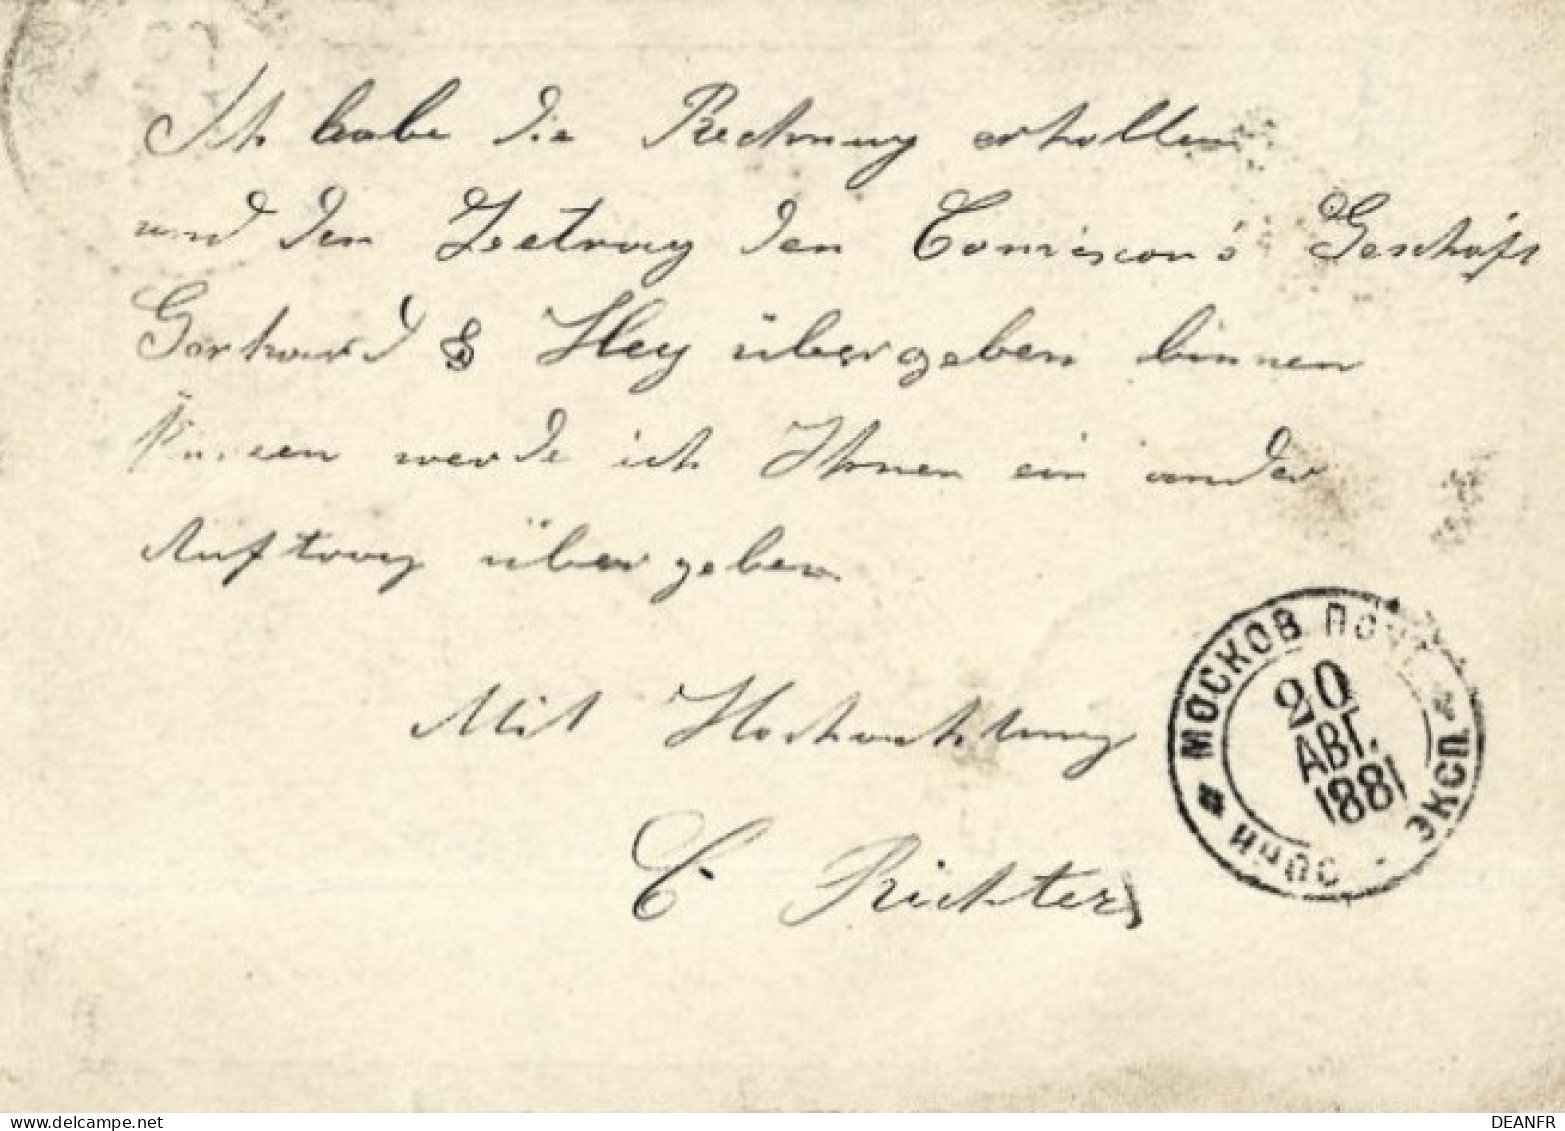 Ich habe die Rechnung erhollen
und den Betrag den Comiscon's Geschäft
Gerhard & Hey übergeben binnen
werde ich Ihnen ein ander
Auftrag übergeben
Mit Hochachtung
C Richter
МОСКОВ ПОЧТ
20
АВГ.
1881
ЭКСП.
DEANFR